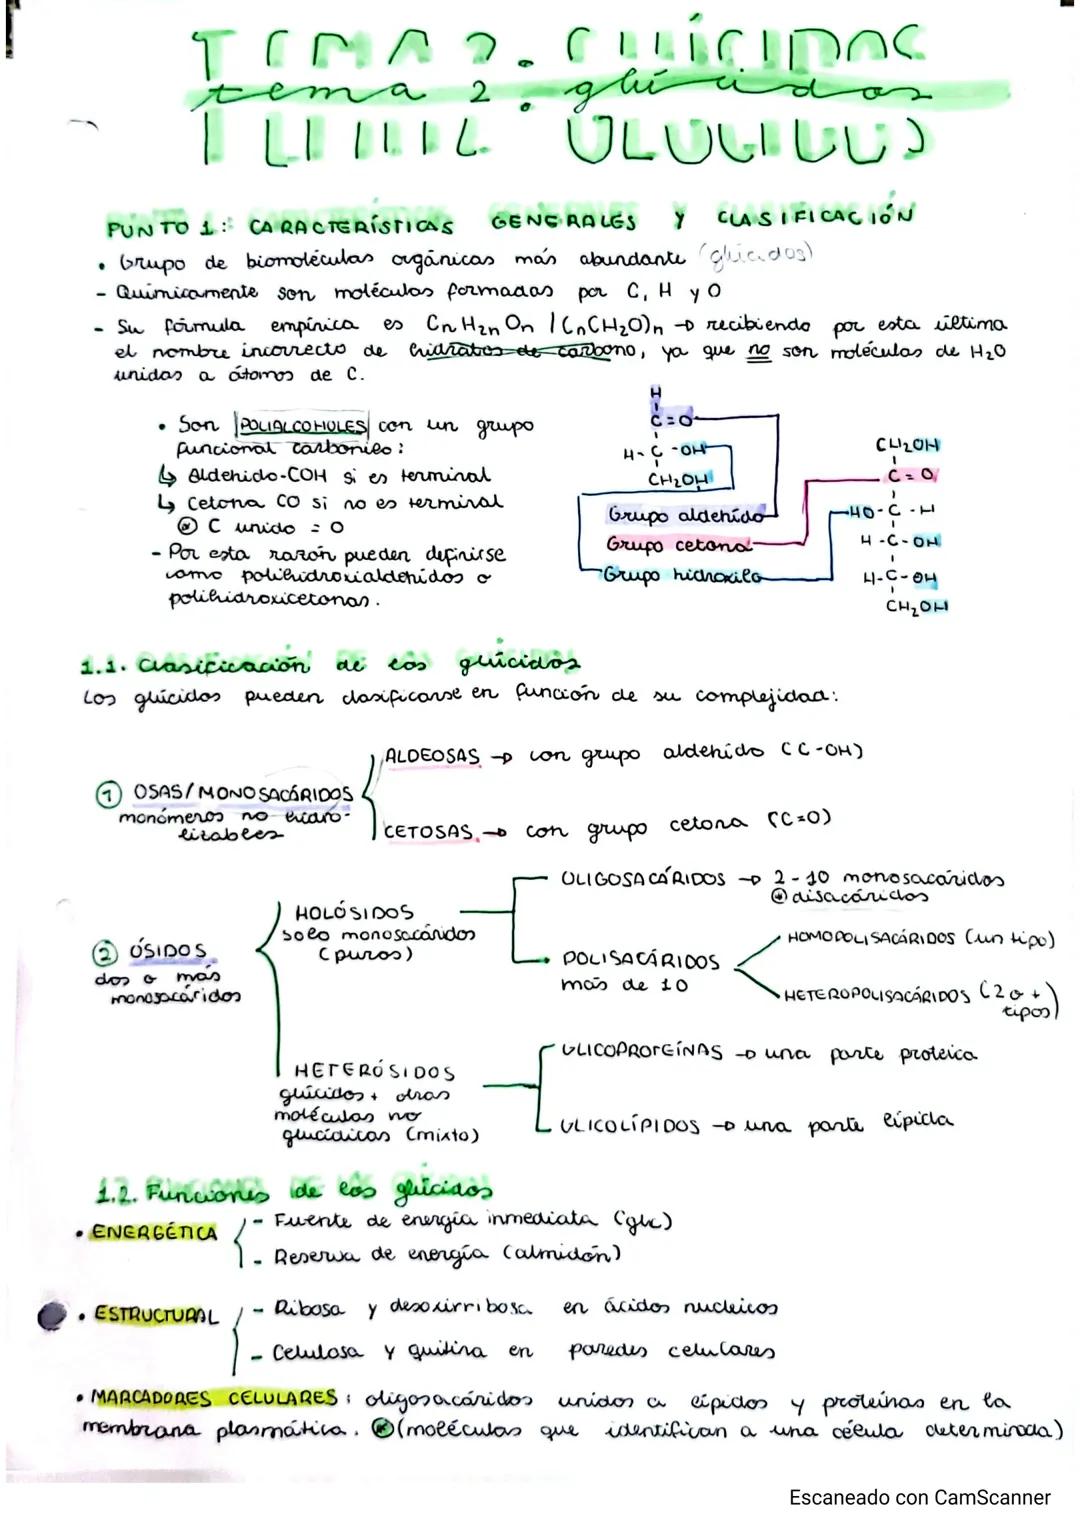 tema 2: glúcidos
PUNTO 1: CARACTERÍSTICAS GENERALES Y CLASIFICACIÓN
• Grupo de biomoléculas orgánicas más abundante (glúcidos)
- Químicamente son moléculas formadas por C, H y O
- Su fórmula empírica es CnH2nOn / (CnCH2O)n → recibiendo por esta última
el nombre incorrecto de hidratos de carbono, ya que no son moléculas de H2O
unidas a átomos de C.
• Son POLIALCOHOLES con un grupo
funcional carbonilo:
↳ Aldehido-COH si es terminal
↳ Cetona CO si no es terminal
* C unido = O
- Por esta razón pueden definirse
como polihidroxialdehídos o
polihidroxicetonas.
H
C=O
H-C-OH
CH2OH
Grupo aldehído
Grupo cetona
Grupo hidroxilo
CH2OH
C=O
HO-C-H
H-C-OH
H-C-OH
CH2OH
1.1. Clasificación de los glúcidos
Los glúcidos pueden clasificarse en función de su complejidad:
① OSAS/MONOSACÁRIDOS
monómeros no hidro-
lizables
ALDEOSAS → con grupo aldehído (C-OH)
CETOSAS → con grupo cetona (C=O)
② ÓSIDOS
dos o más
monosacáridos
HOLÓSIDOS
solo monosacáridos
(puros)
OLIGOSACÁRIDOS → 2-10 monosacáridos
* disacáridos
POLISACÁRIDOS
más de 10
HOMOPOLISACÁRIDOS (un tipo)
HETEROPOLISACÁRIDOS (2 o +
tipos)
HETERÓSIDOS
glúcidos + otras
moléculas no
glucídicas (mixto)
GLICOPROTEÍNAS → una parte proteica
GLICOLÍPIDOS → una parte lípida
1.2. Funciones de los glúcidos
• ENERGÉTICA
- Fuente de energía inmediata (glc)
- Reserva de energía (almidón)
• ESTRUCTURAL
- Ribosa y desoxirribosa en ácidos nucleicos
- Celulosa y quitina en paredes celulares
• MARCADORES CELULARES: oligosacáridos unidos a lípidos y proteínas en la
membrana plasmática. * (moléculas que identifican a una célula determinada)
Escaneado con CamScanner